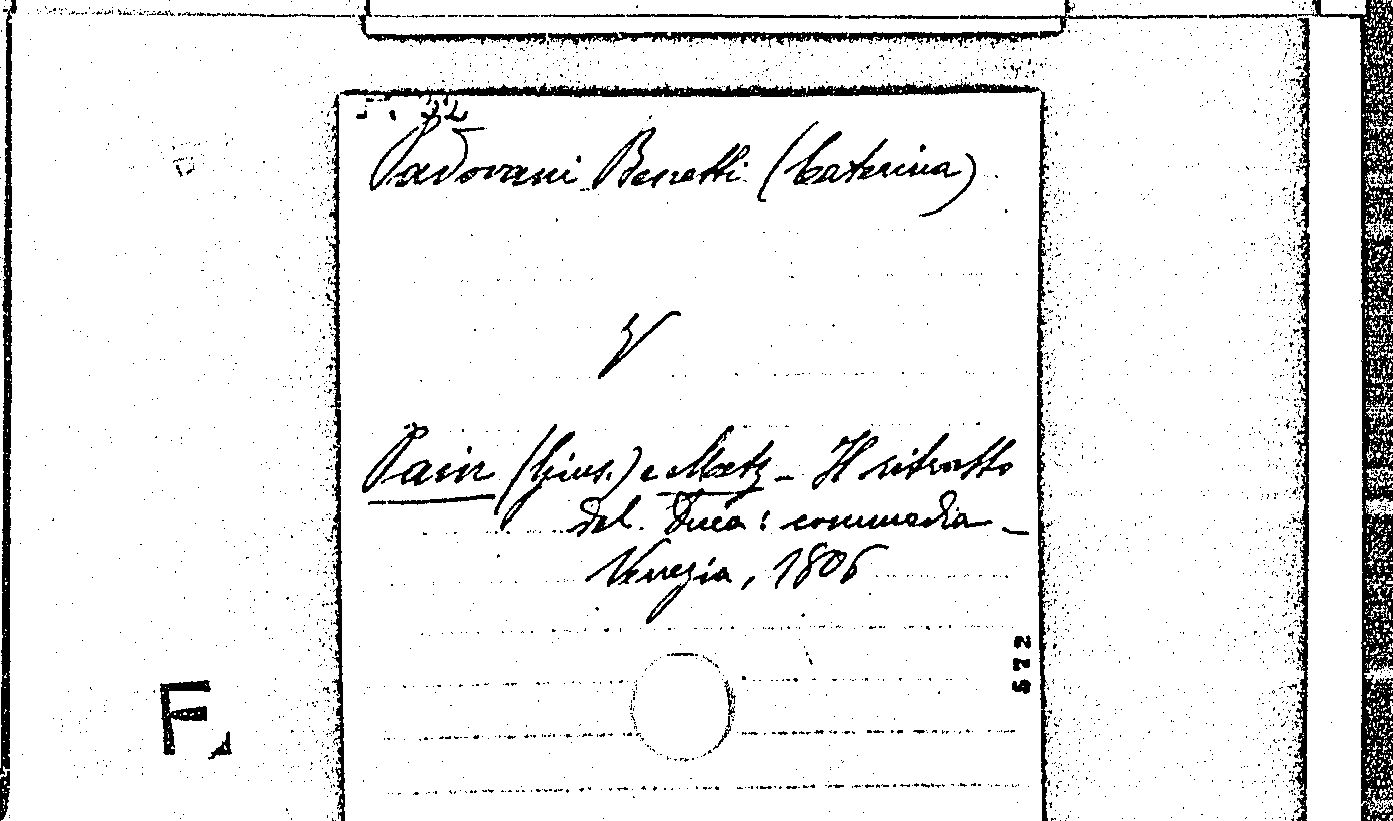 Padovani Benetti (Caterina)
V
Pain (Gius.) e Metz - Il ritratto
del Duca: commedia -
Venezia, 1806
572
F.